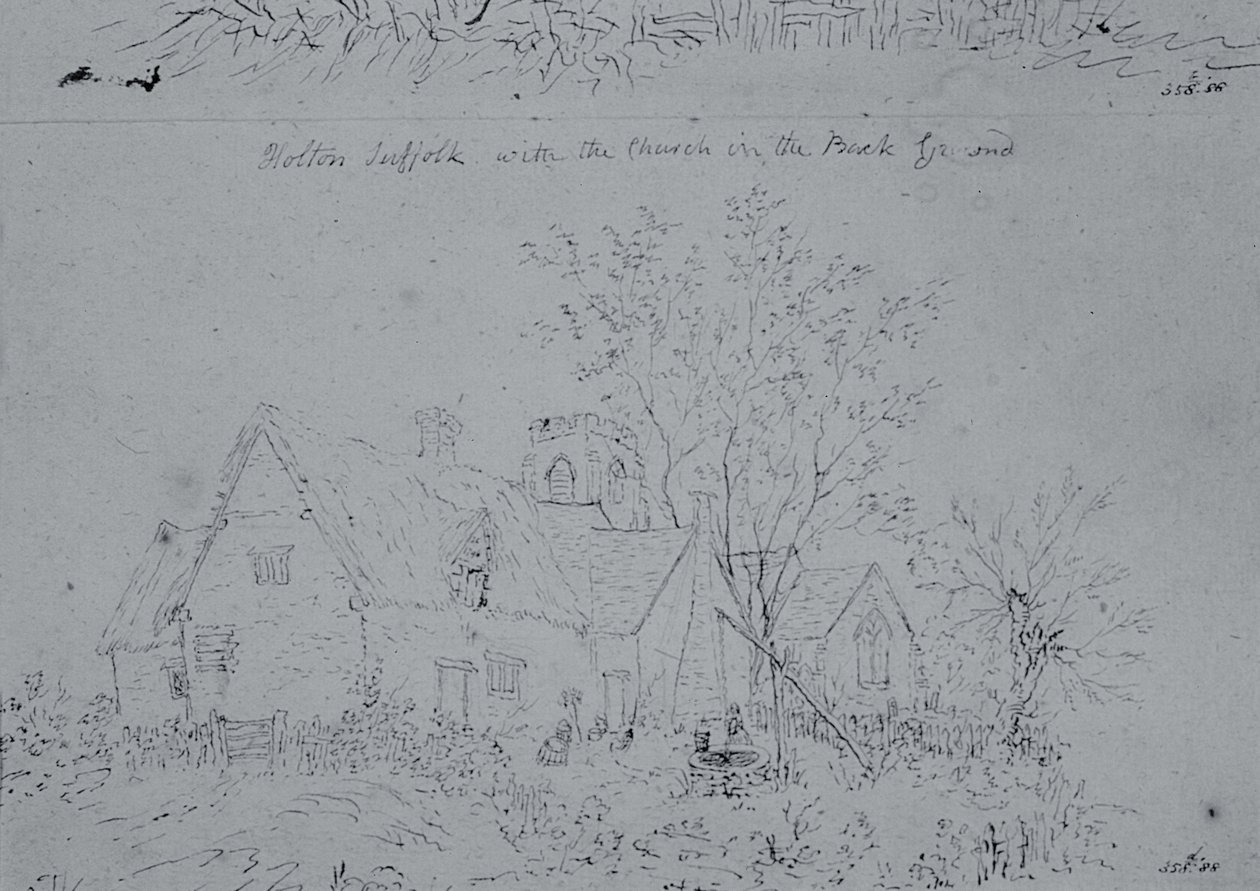 358.E.88
Holton Suffolk with the Church in the Back Ground
358.d.88